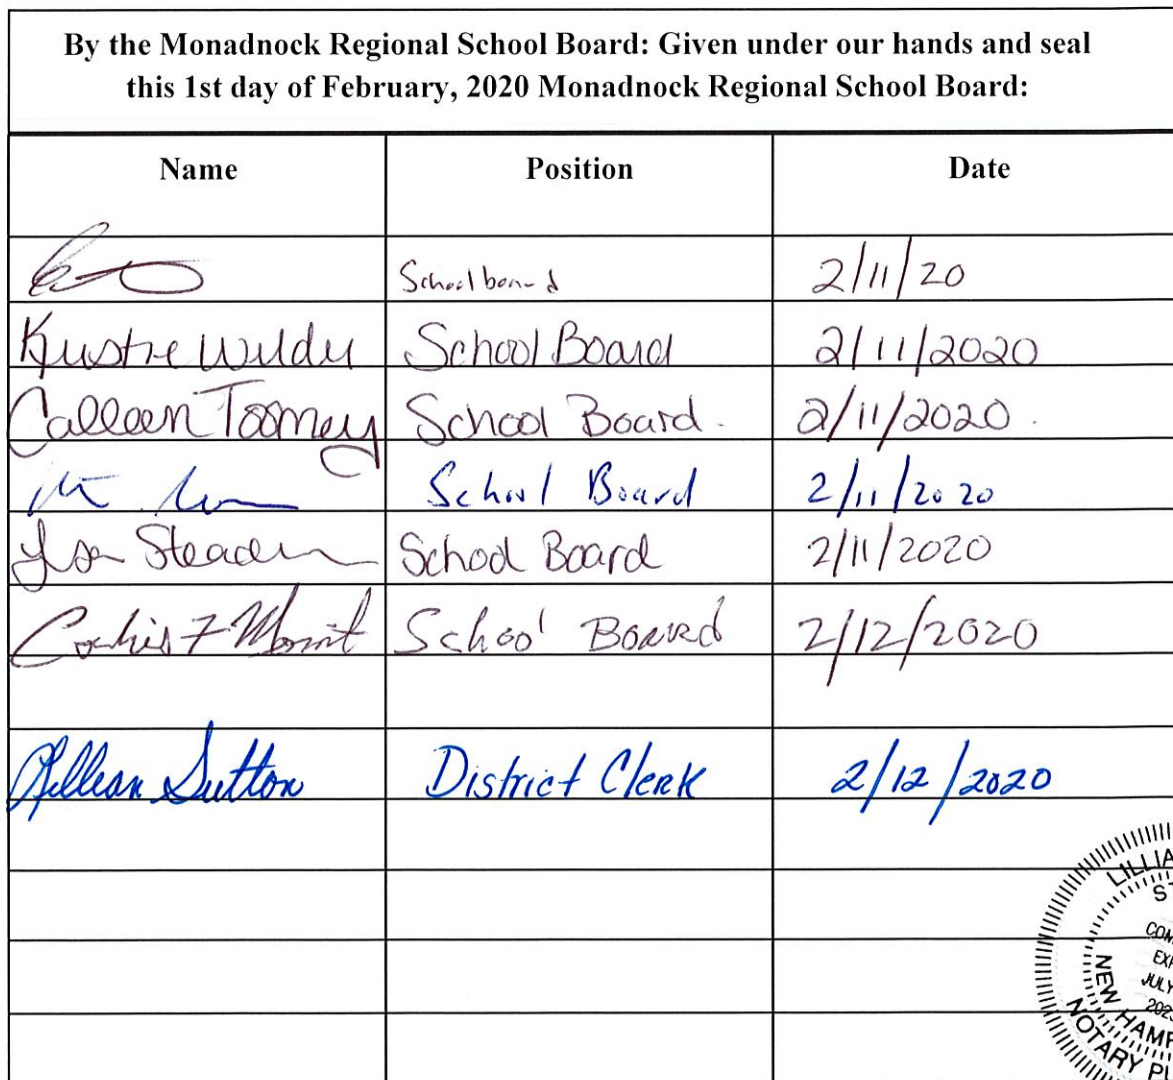 By the Monadnock Regional School Board: Given under our hands and seal
this 1st day of February, 2020 Monadnock Regional School Board:
Name Position Date
School board 2/11/20
Kristie Wilder School Board 2/11/2020
Colleen Toomey School Board. 2/11/2020.
School Board 2/11/2020
Lisa Steadm School Board 2/11/2020
School Board 2/12/2020
Lillian Sutton District Clerk 2/12/2020
LILLIA
S
COM
EXP
JULY
202
NEW HAMP
NOTARY PU